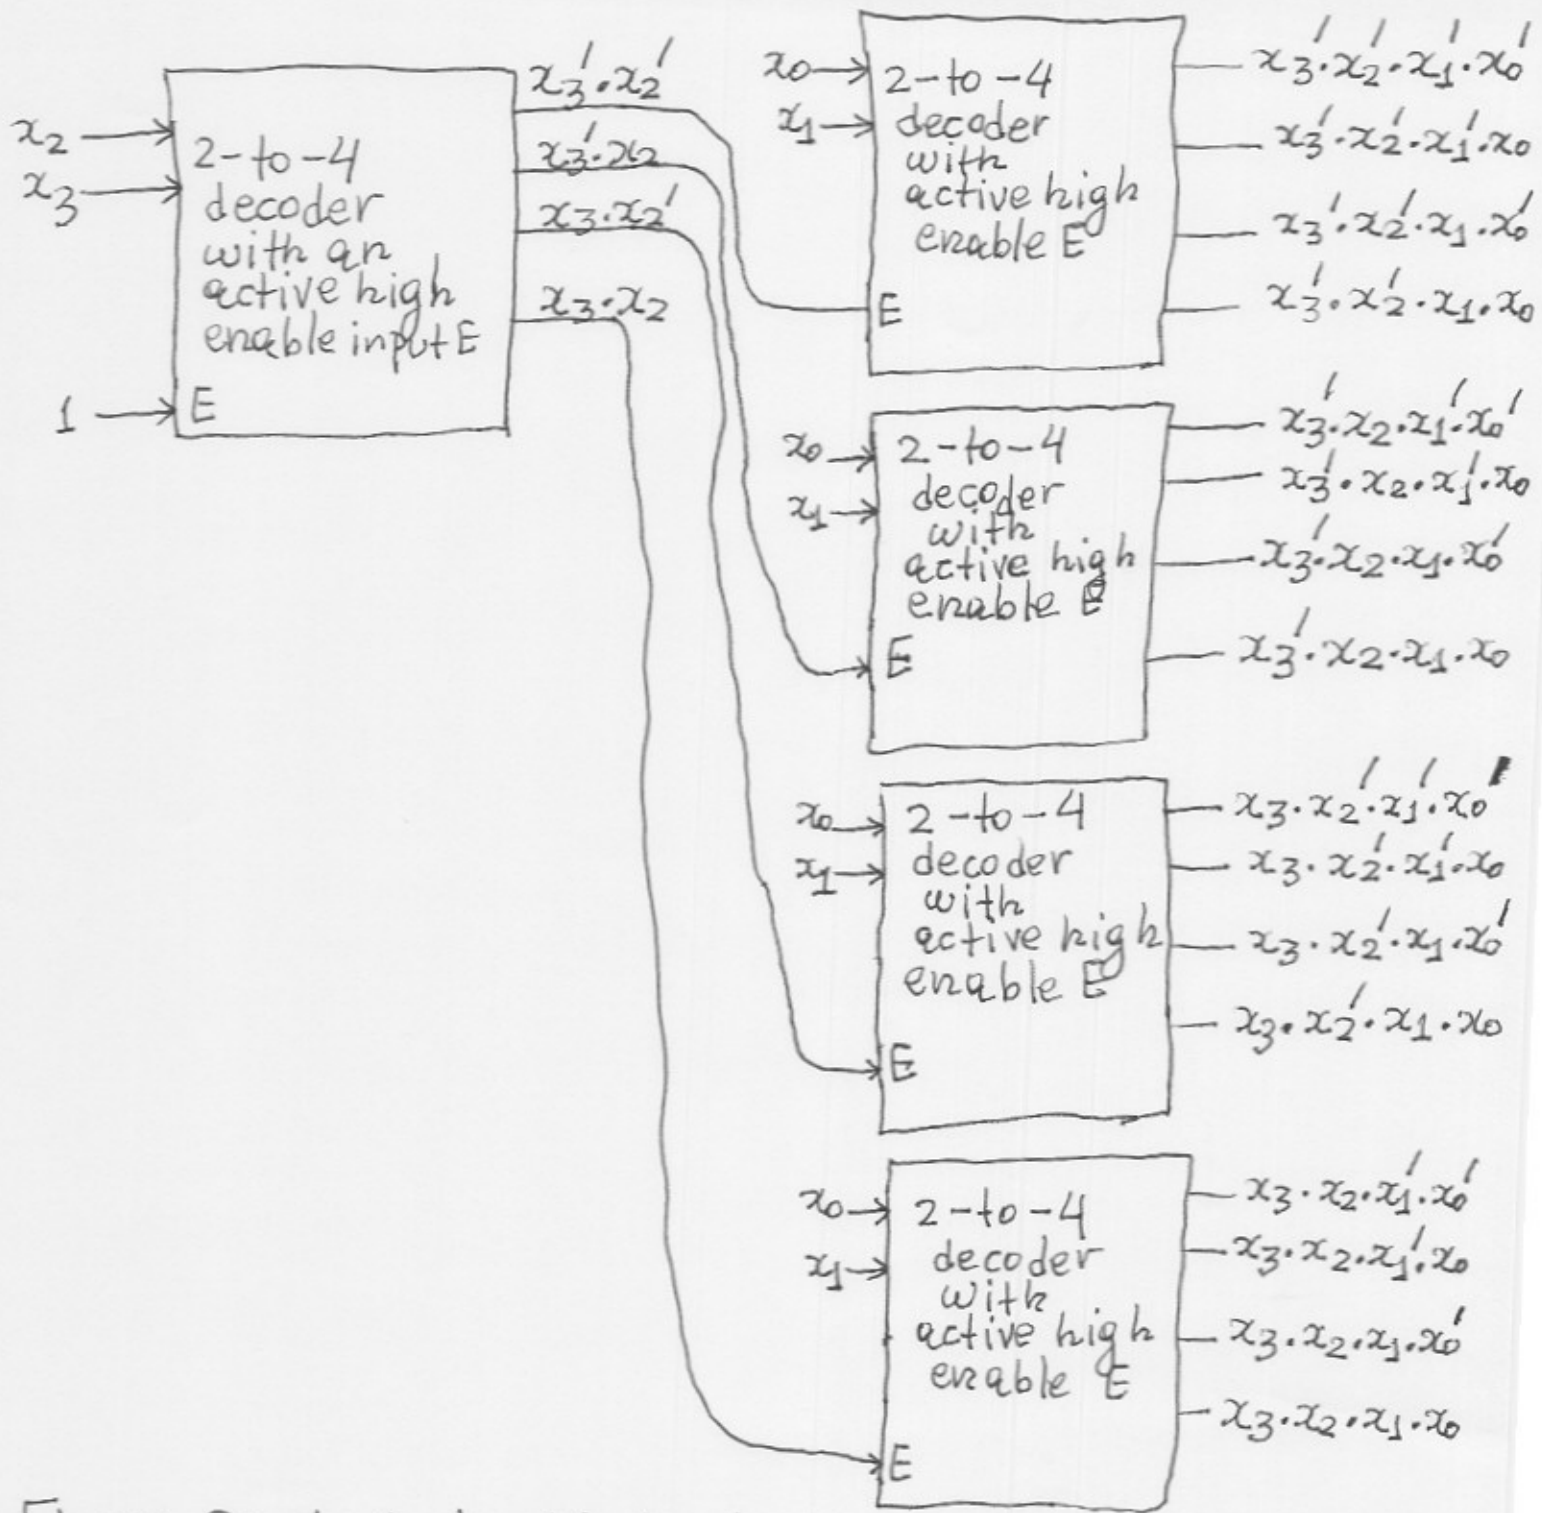 x3'·x2'
x2
x3
2-to-4
decoder
with an
active high
enable input E
1
E
x3'·x2
x3·x2'
x3·x2
x0
x1
2-to-4
decoder
with
active high
enable E
E
x3'·x2'·x1'·x0'
x3'·x2'·x1'·x0
x3'·x2'·x1·x0'
x3'·x2'·x1·x0
x0
x1
2-to-4
decoder
with
active high
enable E
E
x3'·x2·x1'·x0'
x3'·x2·x1'·x0
x3'·x2·x1·x0'
x3'·x2·x1·x0
x0
x1
2-to-4
decoder
with
active high
enable E
E
x3·x2'·x1'·x0'
x3·x2'·x1'·x0
x3·x2'·x1·x0'
x3·x2'·x1·x0
x0
x1
2-to-4
decoder
with
active high
enable E
E
x3·x2·x1'·x0'
x3·x2·x1'·x0
x3·x2·x1·x0'
x3·x2·x1·x0